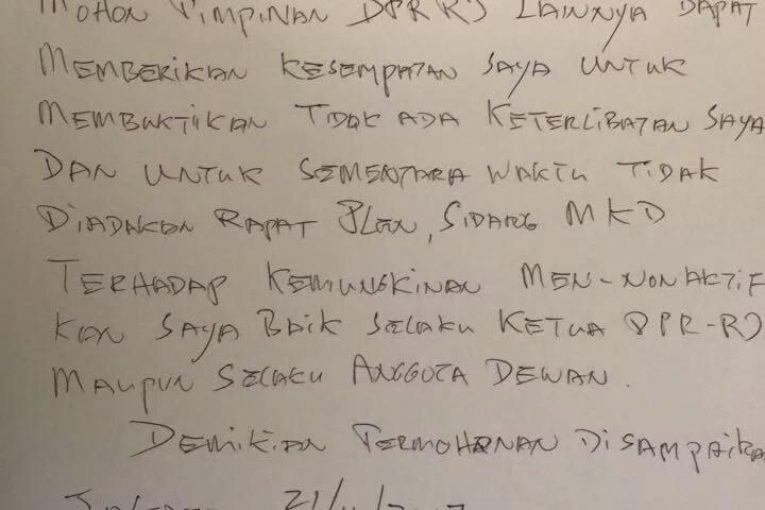 MOHON PIMPINAN DPR RI LAINNYA DAPAT
MEMBERIKAN KESEMPATAN SAYA UNTUK
MEMBUKTIKAN TIDAK ADA KETERLIBATAN SAYA
DAN UNTUK SEMENTARA WAKTU TIDAK
DIADAKAN RAPAT PLEN, SIDANG MKD
TERHADAP KEMUNGKINAN MEN-NONAKTIF
KAN SAYA BAIK SELAKU KETUA DPR-RI
MAUPUN SELAKU ANGGOTA DEWAN.
DEMIKIAN PERMOHONAN DISAMPAIKA